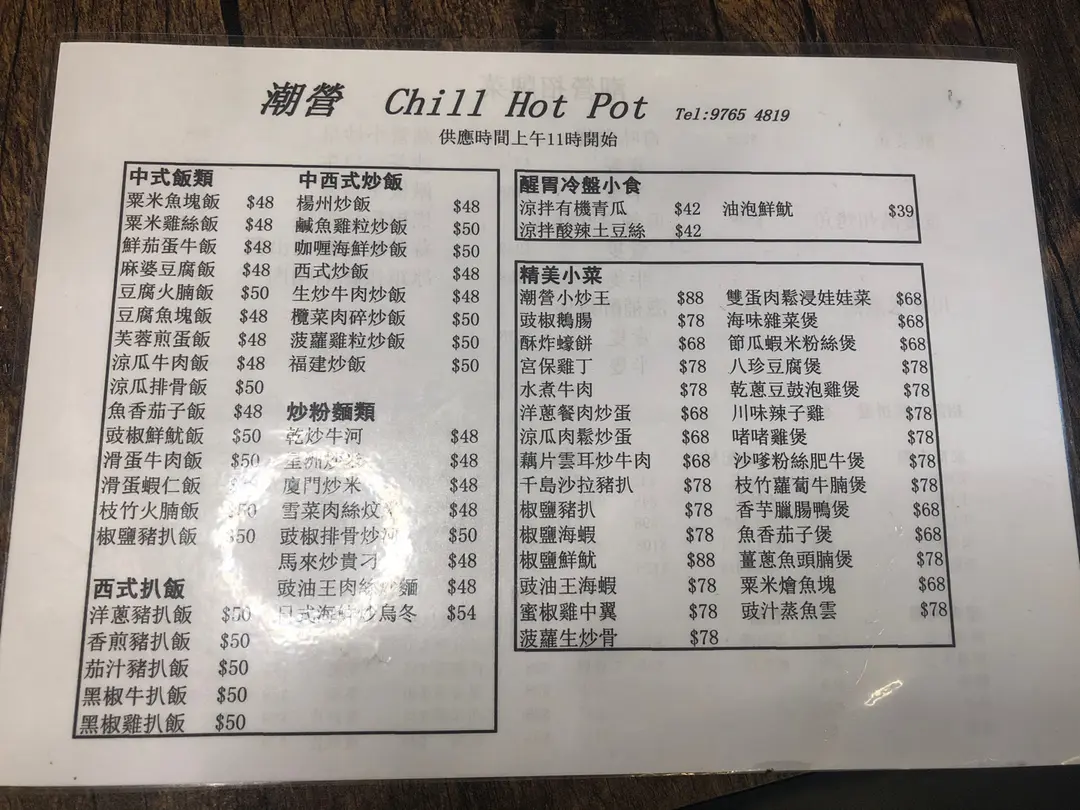 潮營 Chill Hot Pot Tel:9765 4819
供應時間上午11時開始
中式飯類
粟米魚塊飯 $48
粟米雞絲飯 $48
鮮茄蛋牛飯 $48
麻婆豆腐飯 $48
豆腐火腩飯 $50
豆腐魚塊飯 $48
芙蓉煎蛋飯 $48
涼瓜牛肉飯 $48
涼瓜排骨飯 $50
魚香茄子飯 $48
豉椒鮮魷飯 $50
滑蛋牛肉飯 $50
滑蛋蝦仁飯
枝竹火腩飯 $50
椒鹽豬扒飯 $50
西式扒飯
洋蔥豬扒飯 $50
香煎豬扒飯 $50
茄汁豬扒飯 $50
黑椒牛扒飯 $50
黑椒雞扒飯 $50
中西式炒飯
楊州炒飯 $48
鹹魚雞粒炒飯 $50
咖喱海鮮炒飯 $50
西式炒飯 $48
生炒牛肉炒飯 $48
欖菜肉碎炒飯 $50
菠蘿雞粒炒飯 $50
福建炒飯 $50
炒粉麵類
乾炒牛河 $48
星洲炒米 $48
廈門炒米 $48
雪菜肉絲炆 $48
豉椒排骨炒河 $50
馬來炒貴刁 $48
豉油王肉絲炒麵 $48
日式海鮮炒烏冬 $54
醒胃冷盤小食
涼拌有機青瓜 $42 油泡鮮魷 $39
涼拌酸辣土豆絲 $42
精美小菜
潮營小炒王 $88
豉椒鵝腸 $78
酥炸蠔餅 $68
宮保雞丁 $78
水煮牛肉 $78
洋蔥餐肉炒蛋 $68
涼瓜肉鬆炒蛋 $68
藕片雲耳炒牛肉 $68
千島沙拉豬扒 $78
椒鹽豬扒 $78
椒鹽海蝦 $78
椒鹽鮮魷 $88
豉油王海蝦 $78
蜜椒雞中翼 $78
菠蘿生炒骨 $78
雙蛋肉鬆浸娃娃菜 $68
海味雜菜煲 $68
節瓜蝦米粉絲煲 $68
八珍豆腐煲 $78
乾蔥豆鼓泡雞煲 $78
川味辣子雞 $78
啫啫雞煲 $78
沙嗲粉絲肥牛煲 $78
枝竹蘿蔔牛腩煲 $78
香芋臘腸鴨煲 $68
魚香茄子煲 $68
薑蔥魚頭腩煲 $78
粟米燴魚塊 $68
豉汁蒸魚雲 $78